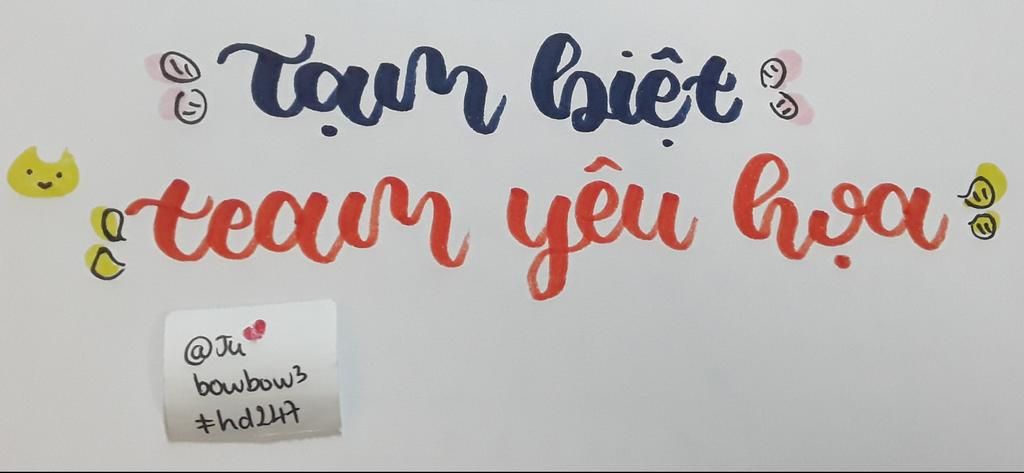 Tạm biệt
team yêu họa
@Ju
bowbow3
#hd247